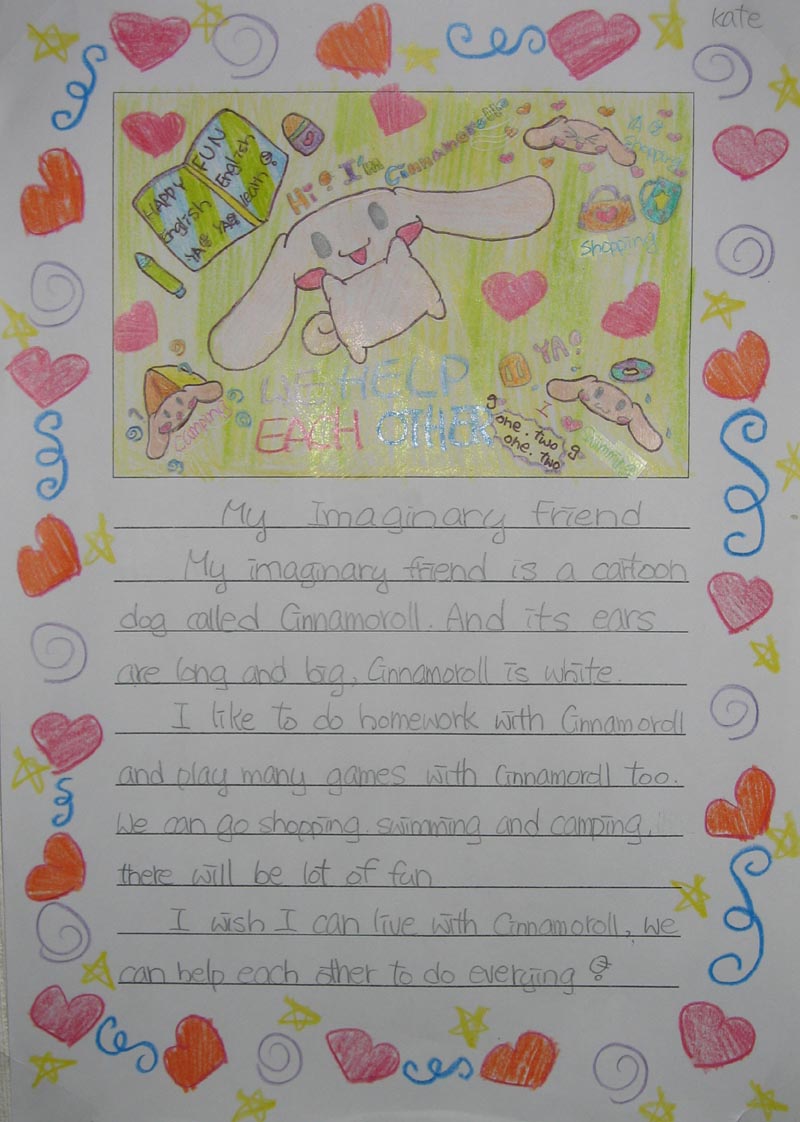 kate
HAPPY FUN
English English
YA@ YA@ learn
Hi I'm Cinnamoroll
YA @
Shopping
Shopping
WE HELP
EACH OTHER
Camping
YA!
one. two
one. two
Swimming
My Imaginary friend
My imaginary friend is a cartoon
dog called Cinnamoroll. And its ears
are long and big, Cinnamoroll is white.
I like to do homework with Cinnamoroll
and play many games with Cinnamoroll too.
We can go shopping. swimming and camping,
there will be lot of fun
I wish I can live with Cinnamoroll, we
can help each other to do everying